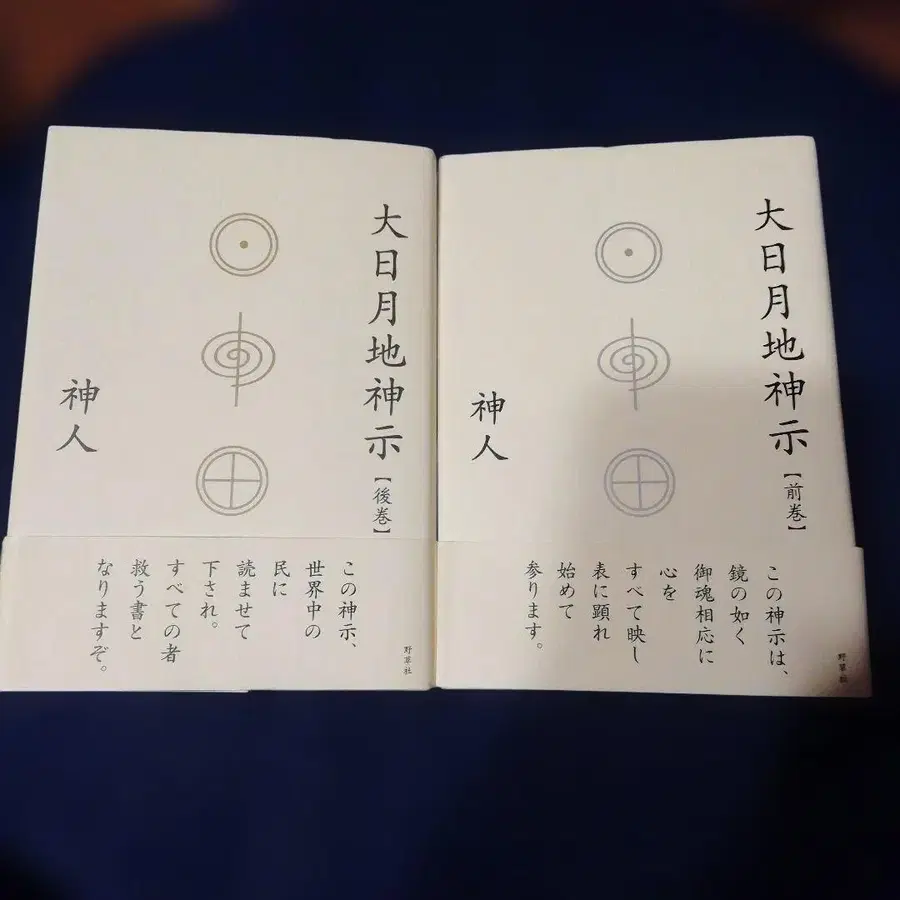 大日月地神示【後巻】
神人
この神示、
世界中の
民に
読ませて
下され。
すべての者
救う書と
なりますぞ。
野草社
大日月地神示【前巻】
神人
この神示は、
鏡の如く
御魂相応に
心を
すべて映し
表に顕れ
始めて
参ります。
野草社